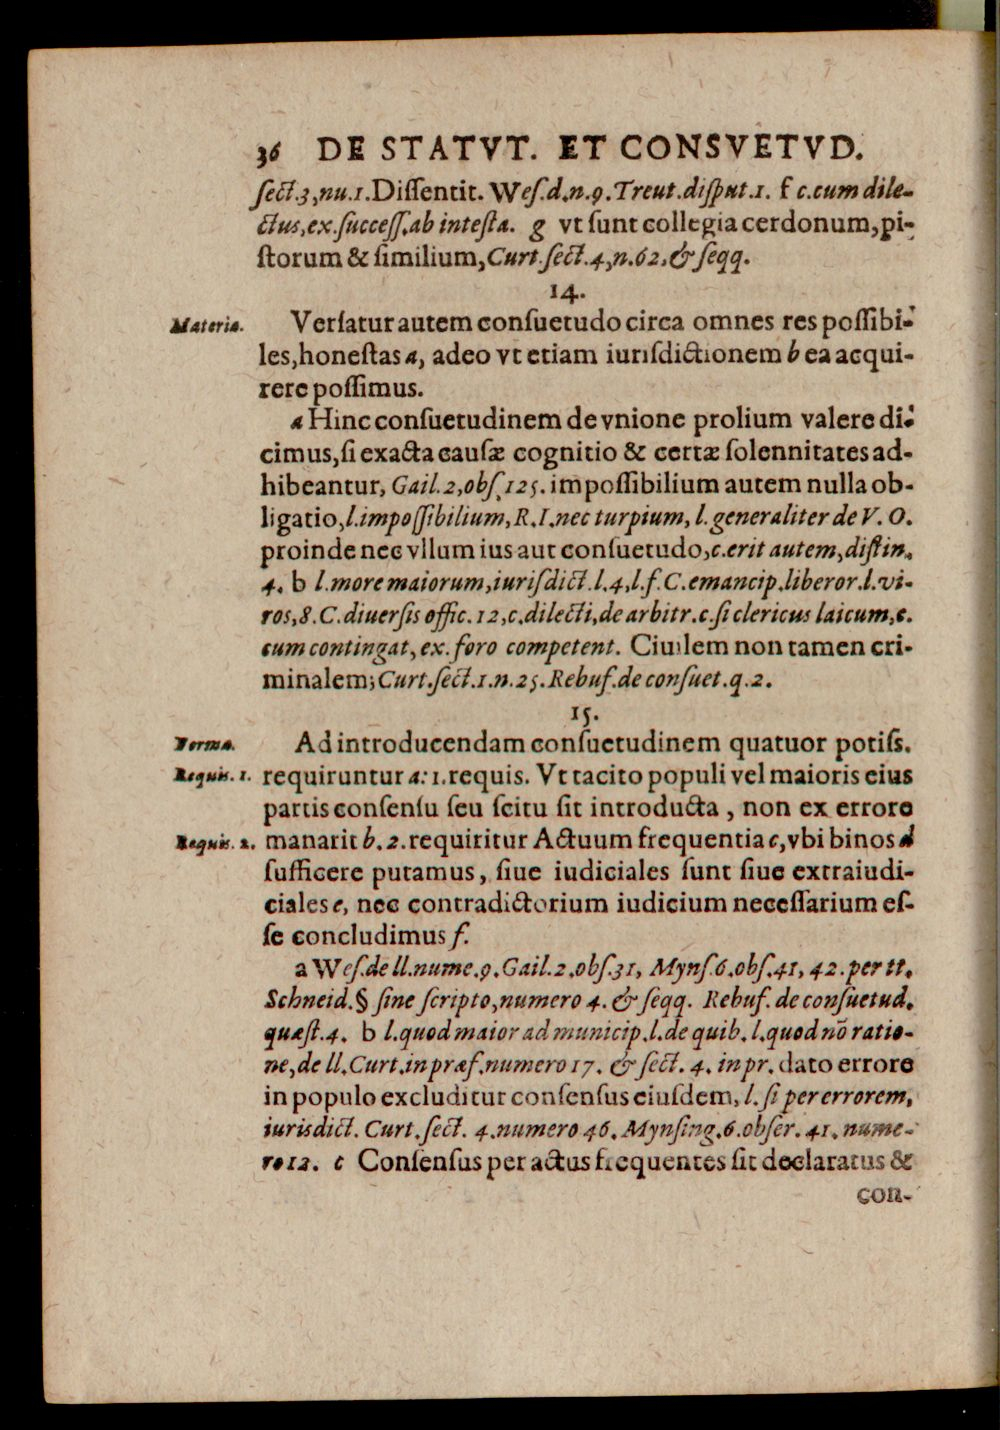 36 DE STATVT. ET CONSVETVD.
ſect.3,nu.1.Diſſentit. Weſ.d.n.9.Treut.diſput.1. f c.cum dile-
ctus,ex.ſucceſſ.ab inteſta. g vt ſunt collegia cerdonum,pi-
ſtorum & ſimilium,Curt.ſect.4,n.62.& ſeqq.
14.
Materia. Verſatur autem conſuetudo circa omnes res poſſibi-
les,honeſtas a, adeo vt etiam iuriſdictionem b ea acqui-
rere poſſimus.
a Hinc conſuetudinem de vnione prolium valere di-
cimus,ſi exacta cauſæ cognitio & certæ ſolennitates ad-
hibeantur, Gail.2,obſ.125. impoſſibilium autem nulla ob-
ligatio,l.impoſſibilium,R.I.nec turpium, l.generaliter de V. O.
proinde nec vllum ius aut conſuetudo,c.erit autem,diſtin.
4. b l.more maiorum,iuriſdict.l.4,l.f.C.emancip.liberor.l.vi-
ros,8.C.diuerſis offic.12,c.dilecti,de arbitr.c.ſi clericus laicum,c.
cum contingat,ex.foro competent. Ciuilem non tamen cri-
minalem;Curt.ſect.1.n.25.Rebuf.de conſuet.q.2.
15.
Forma. Ad introducendam conſuetudinem quatuor potiſſ.
Requis. 1. requiruntur a: 1.requis. Vt tacito populi vel maioris eius
partis conſenſu ſeu ſcitu ſit introducta , non ex errore
Requis. 2. manarit b. 2.requiritur Actuum frequentia c,vbi binos d
ſufficere putamus, ſiue iudiciales ſunt ſiue extraiudi-
ciales e, nec contradictorium iudicium neceſſarium eſ-
ſe concludimus f.
a Weſ.de ll.nume.9.Gail.2.obſ.31, Mynſ.6.obſ.41, 42.per tt.
Schneid.§ ſine ſcripto,numero 4. & ſeqq. Rebuf. de conſuetud.
quæſt.4. b l.quod maior ad municip.l.de quib.l.quod nō ratio-
ne,de ll.Curt.in præf.numero 17. & ſect. 4. in pr. dato errore
in populo excluditur conſenſus eiuſdem, l. ſi per errorem,
iurisdict. Curt.ſect. 4.numero 46. Mynſing.6.obſer. 41. nume-
ro 12. c Conſenſus per actus frequentes ſit declaratus &
con-